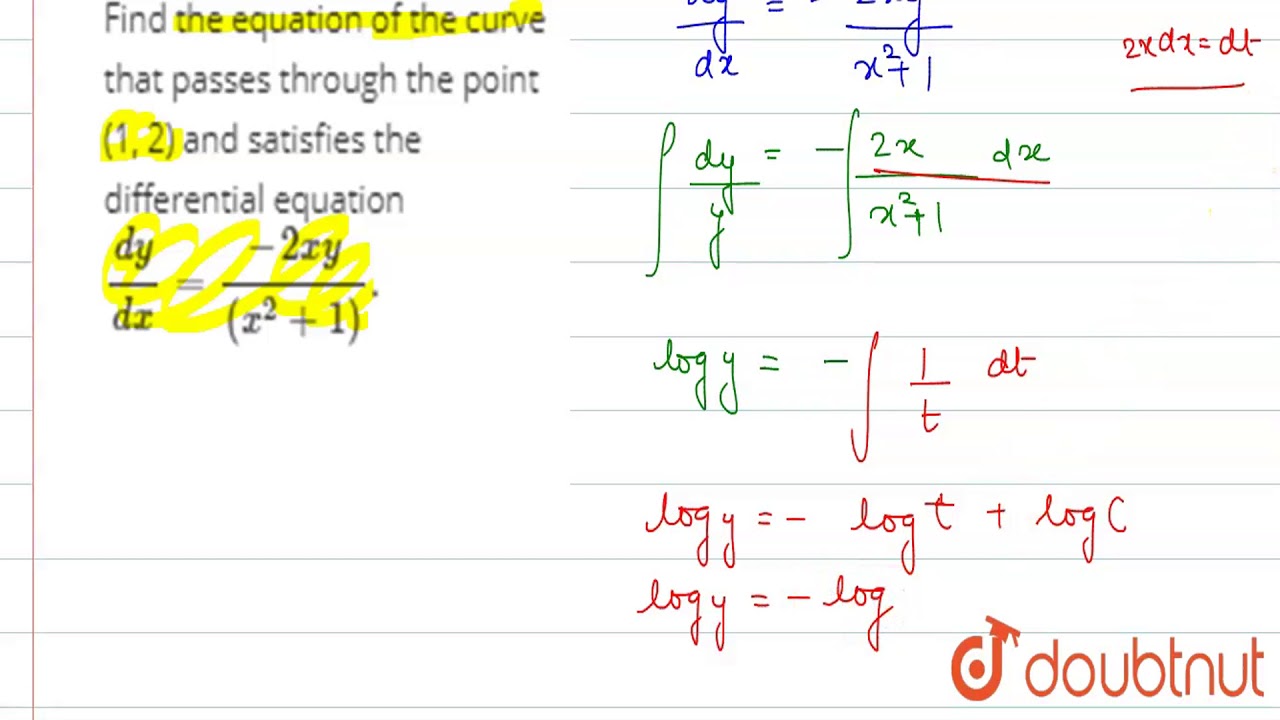 Find the equation of the curve
that passes through the point
(1, 2) and satisfies the
differential equation
dy/dx = -2xy/(x² + 1).
dx x²+1
2x dx = dt
∫ dy/y = -∫ 2x/x²+1 dx
log y = -∫ 1/t dt
log y = - log t + log C
log y = - log
doubtnut